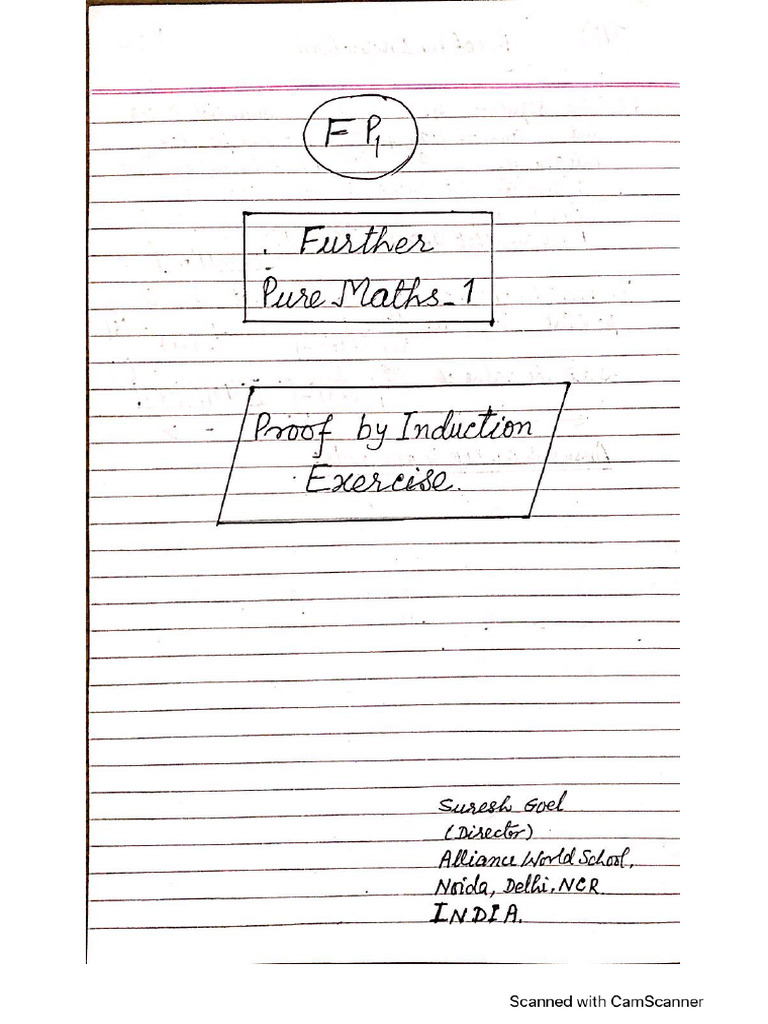 FP1
Further
Pure Maths-1
Proof by Induction
Exercise.
Suresh Goel
(Director)
Alliance World School,
Noida, Delhi, NCR
INDIA.
Scanned with CamScanner